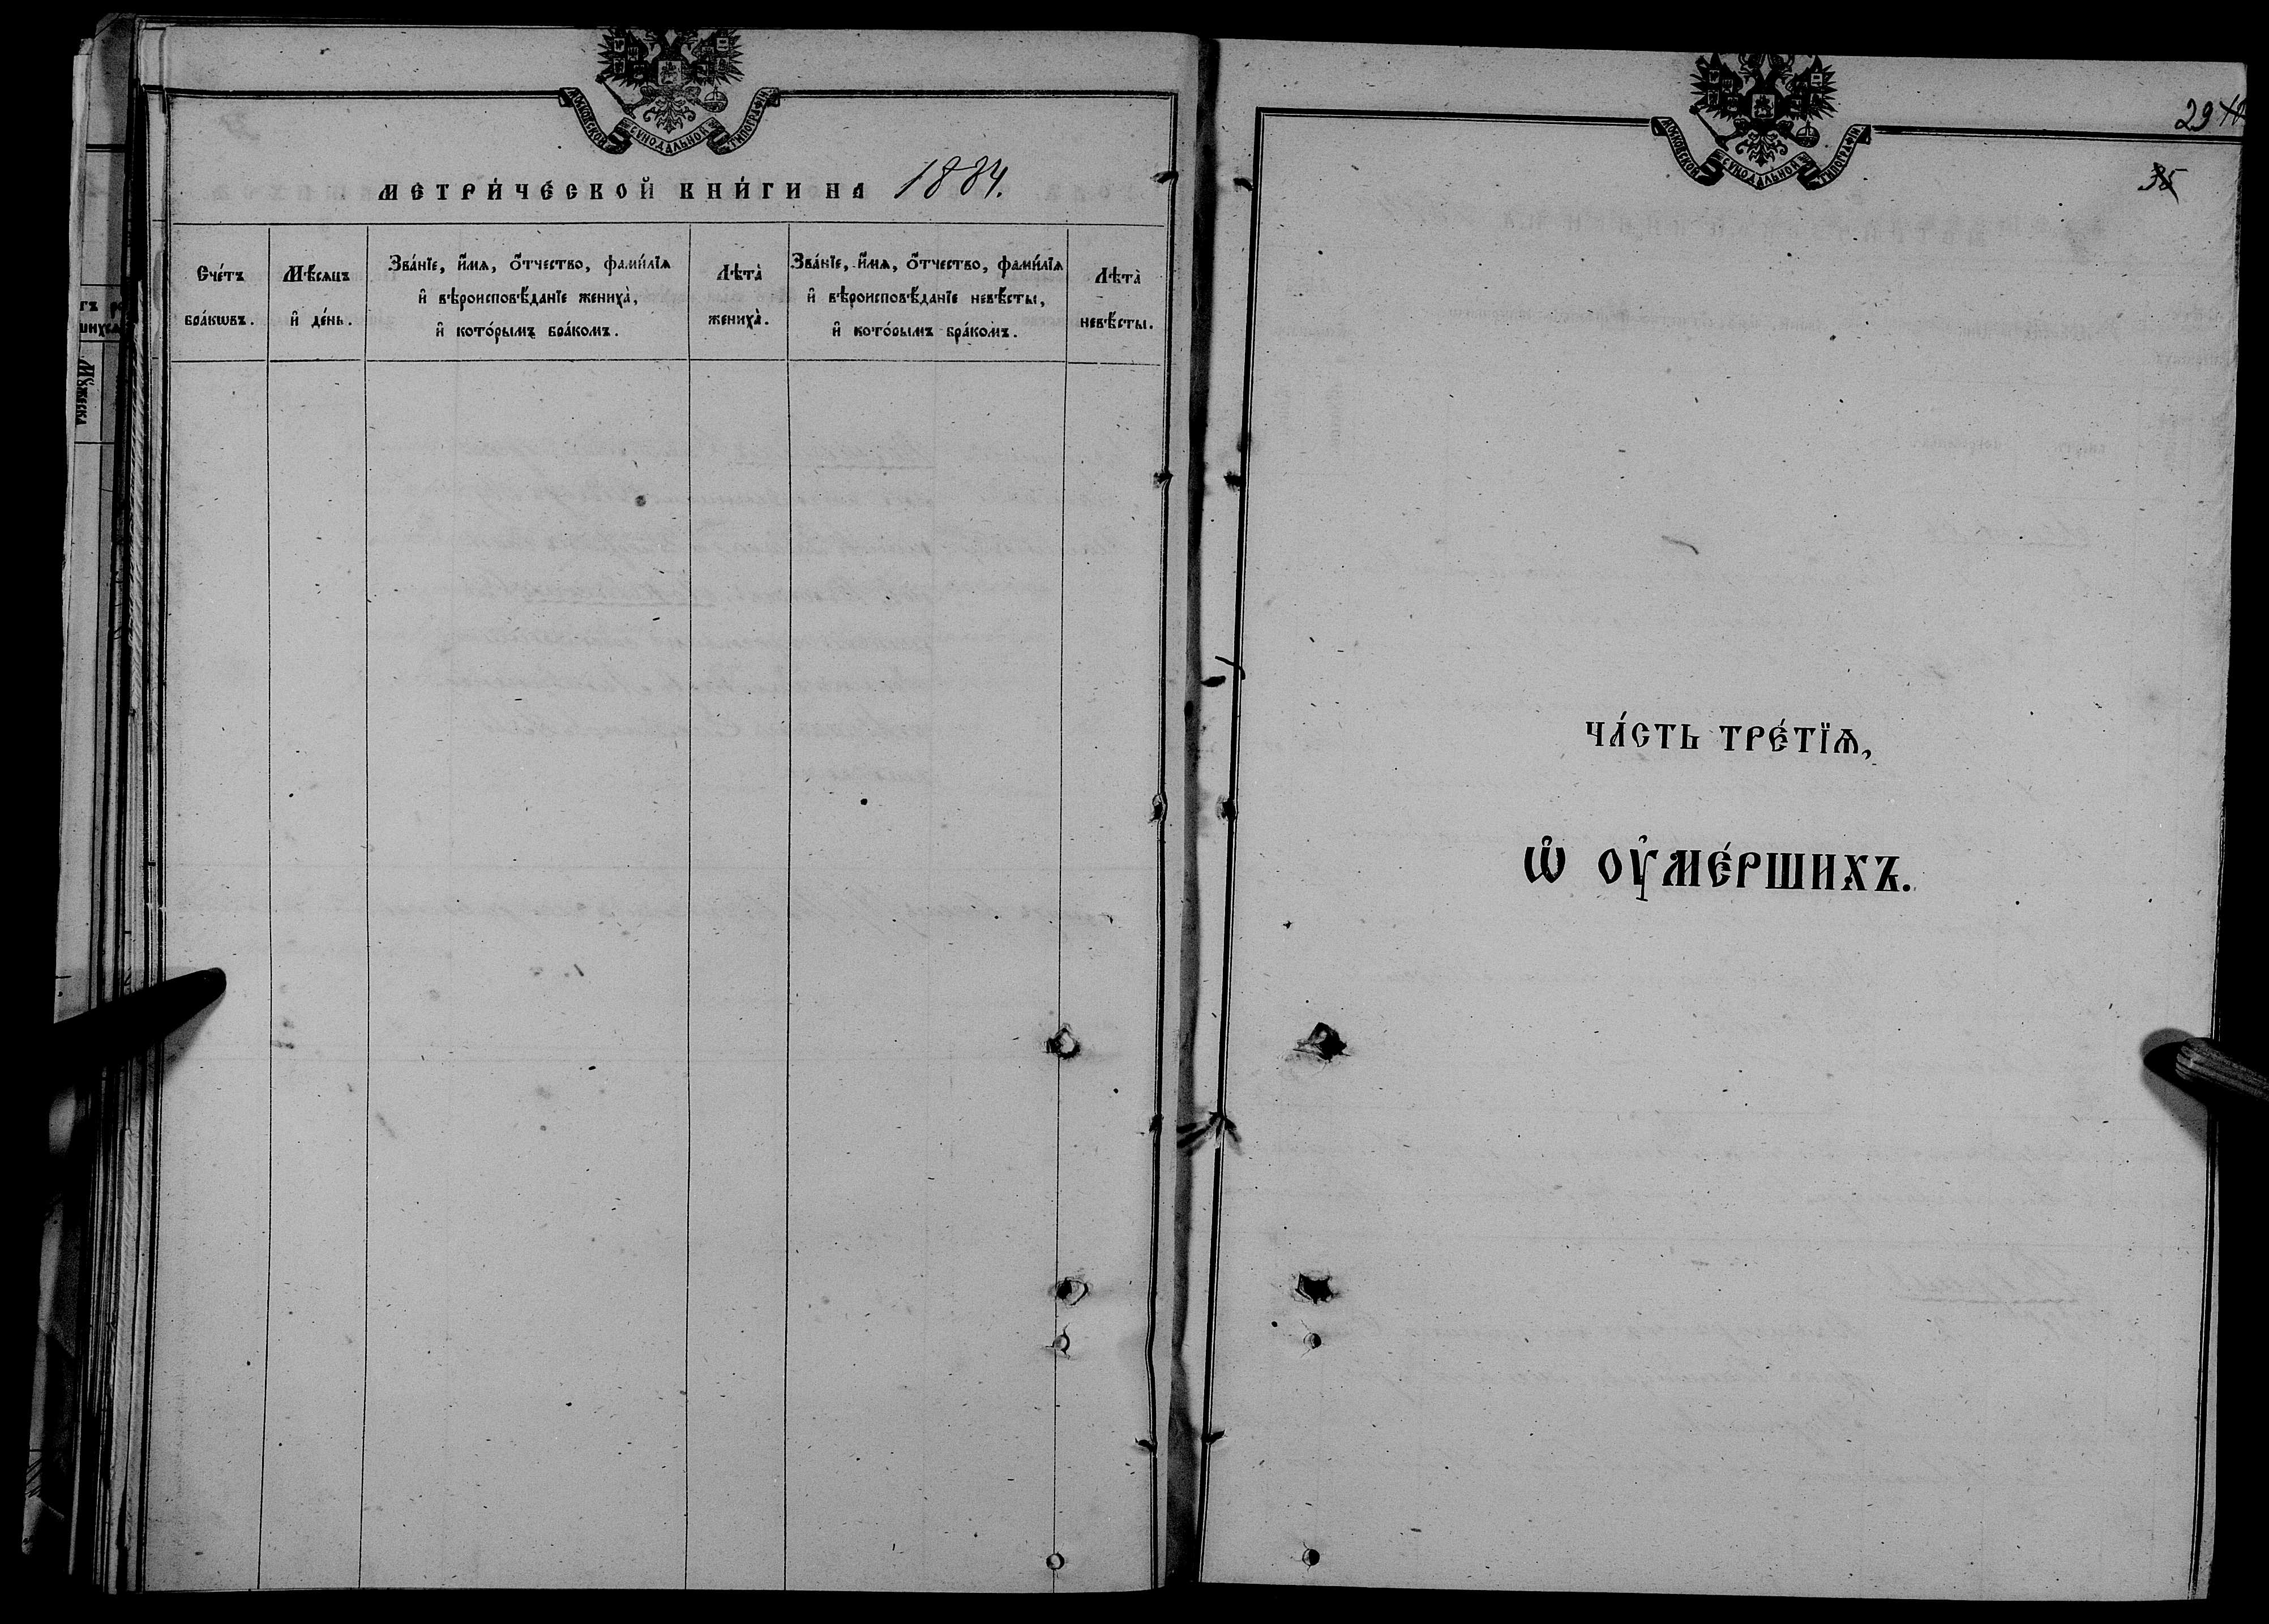 МОСКОВСКОЙ СѴНОДАЛЬНОЙ ТИПОГРАФІИ
МЕТРИ́ЧЕСКОЙ КНИ́ГИ НА 1884.
Сче́тъ
бра́кѡвъ.
Мѣ́сѧцъ
и҆ де́нь.
Зва́нїе, и҆́мѧ, ѻ҆́тчество, фами́лїѧ
и҆ вѣроисповѣ́данїе жениха̀,
и҆ кото́рымъ бра́комъ.
Лѣта̀
жениха̀.
Зва́нїе, и҆́мѧ, ѻ҆́тчество, фами́лїѧ
и҆ вѣроисповѣ́данїе невѣ́сты,
и҆ кото́рымъ бра́комъ.
Лѣта̀
невѣ́сты.
МОСКОВСКОЙ СѴНОДАЛЬНОЙ ТИПОГРАФІИ
29
35
ЧА́СТЬ ТРЕ́ТЇѦ,
Ѡ҆ ОУ҆МЕ́РШИХЪ.